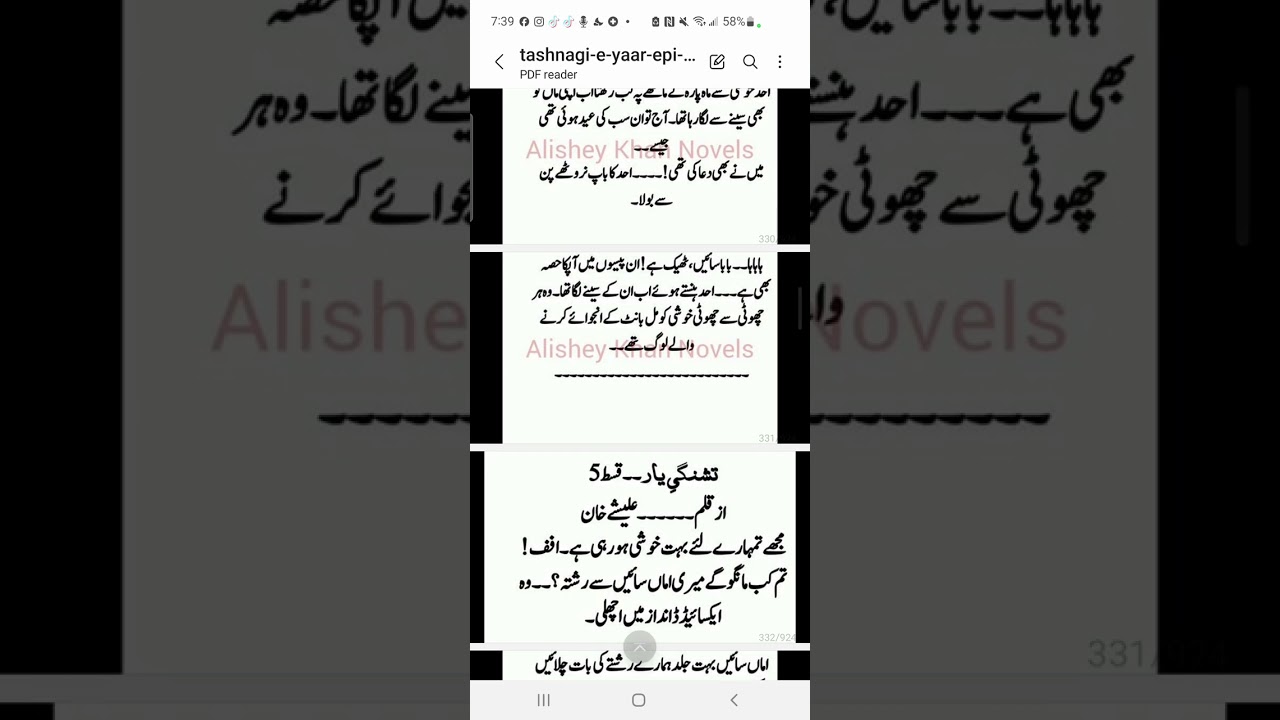 7:39
58%
tashnagi-e-yaar-epi-...
PDF reader
بھی سینے سے لگا رہا تھا۔ آج تو ان سب کی عید ہوئی تھی
جیسے۔۔
Alishey Khan Novels
میں نے بھی دعا کی تھی!۔۔۔۔احد کا باپ نروٹھے پن
سے بولا۔
330
ہاہاہا۔۔ بابا سائیں، ٹھیک ہے! ان پیسوں میں آپکا حصہ
بھی ہے۔۔۔احد ہنستے ہوئے اب ان کے سینے لگا تھا۔ وہ ہر
چھوٹی سے چھوٹی خوشی کو مل بانٹ کے انجوائے کرنے
والے لوگ تھے۔۔
Alishey Khan Novels
۔۔۔۔۔۔۔۔۔۔۔۔۔۔۔۔۔۔۔۔۔۔۔۔۔۔
331
تشنگیِ یار۔۔قسط 5
از قلم۔۔۔۔۔۔علیشے خان
مجھے تمہارے لئے بہت خوشی ہو رہی ہے۔ افف!
تم کب مانگو گے میری اماں سائیں سے رشتہ؟۔۔وہ
ایکسائیٹڈ انداز میں اچھلی۔
332/924
اماں سائیں بہت جلد ہمارے رشتے کی بات چلائیں